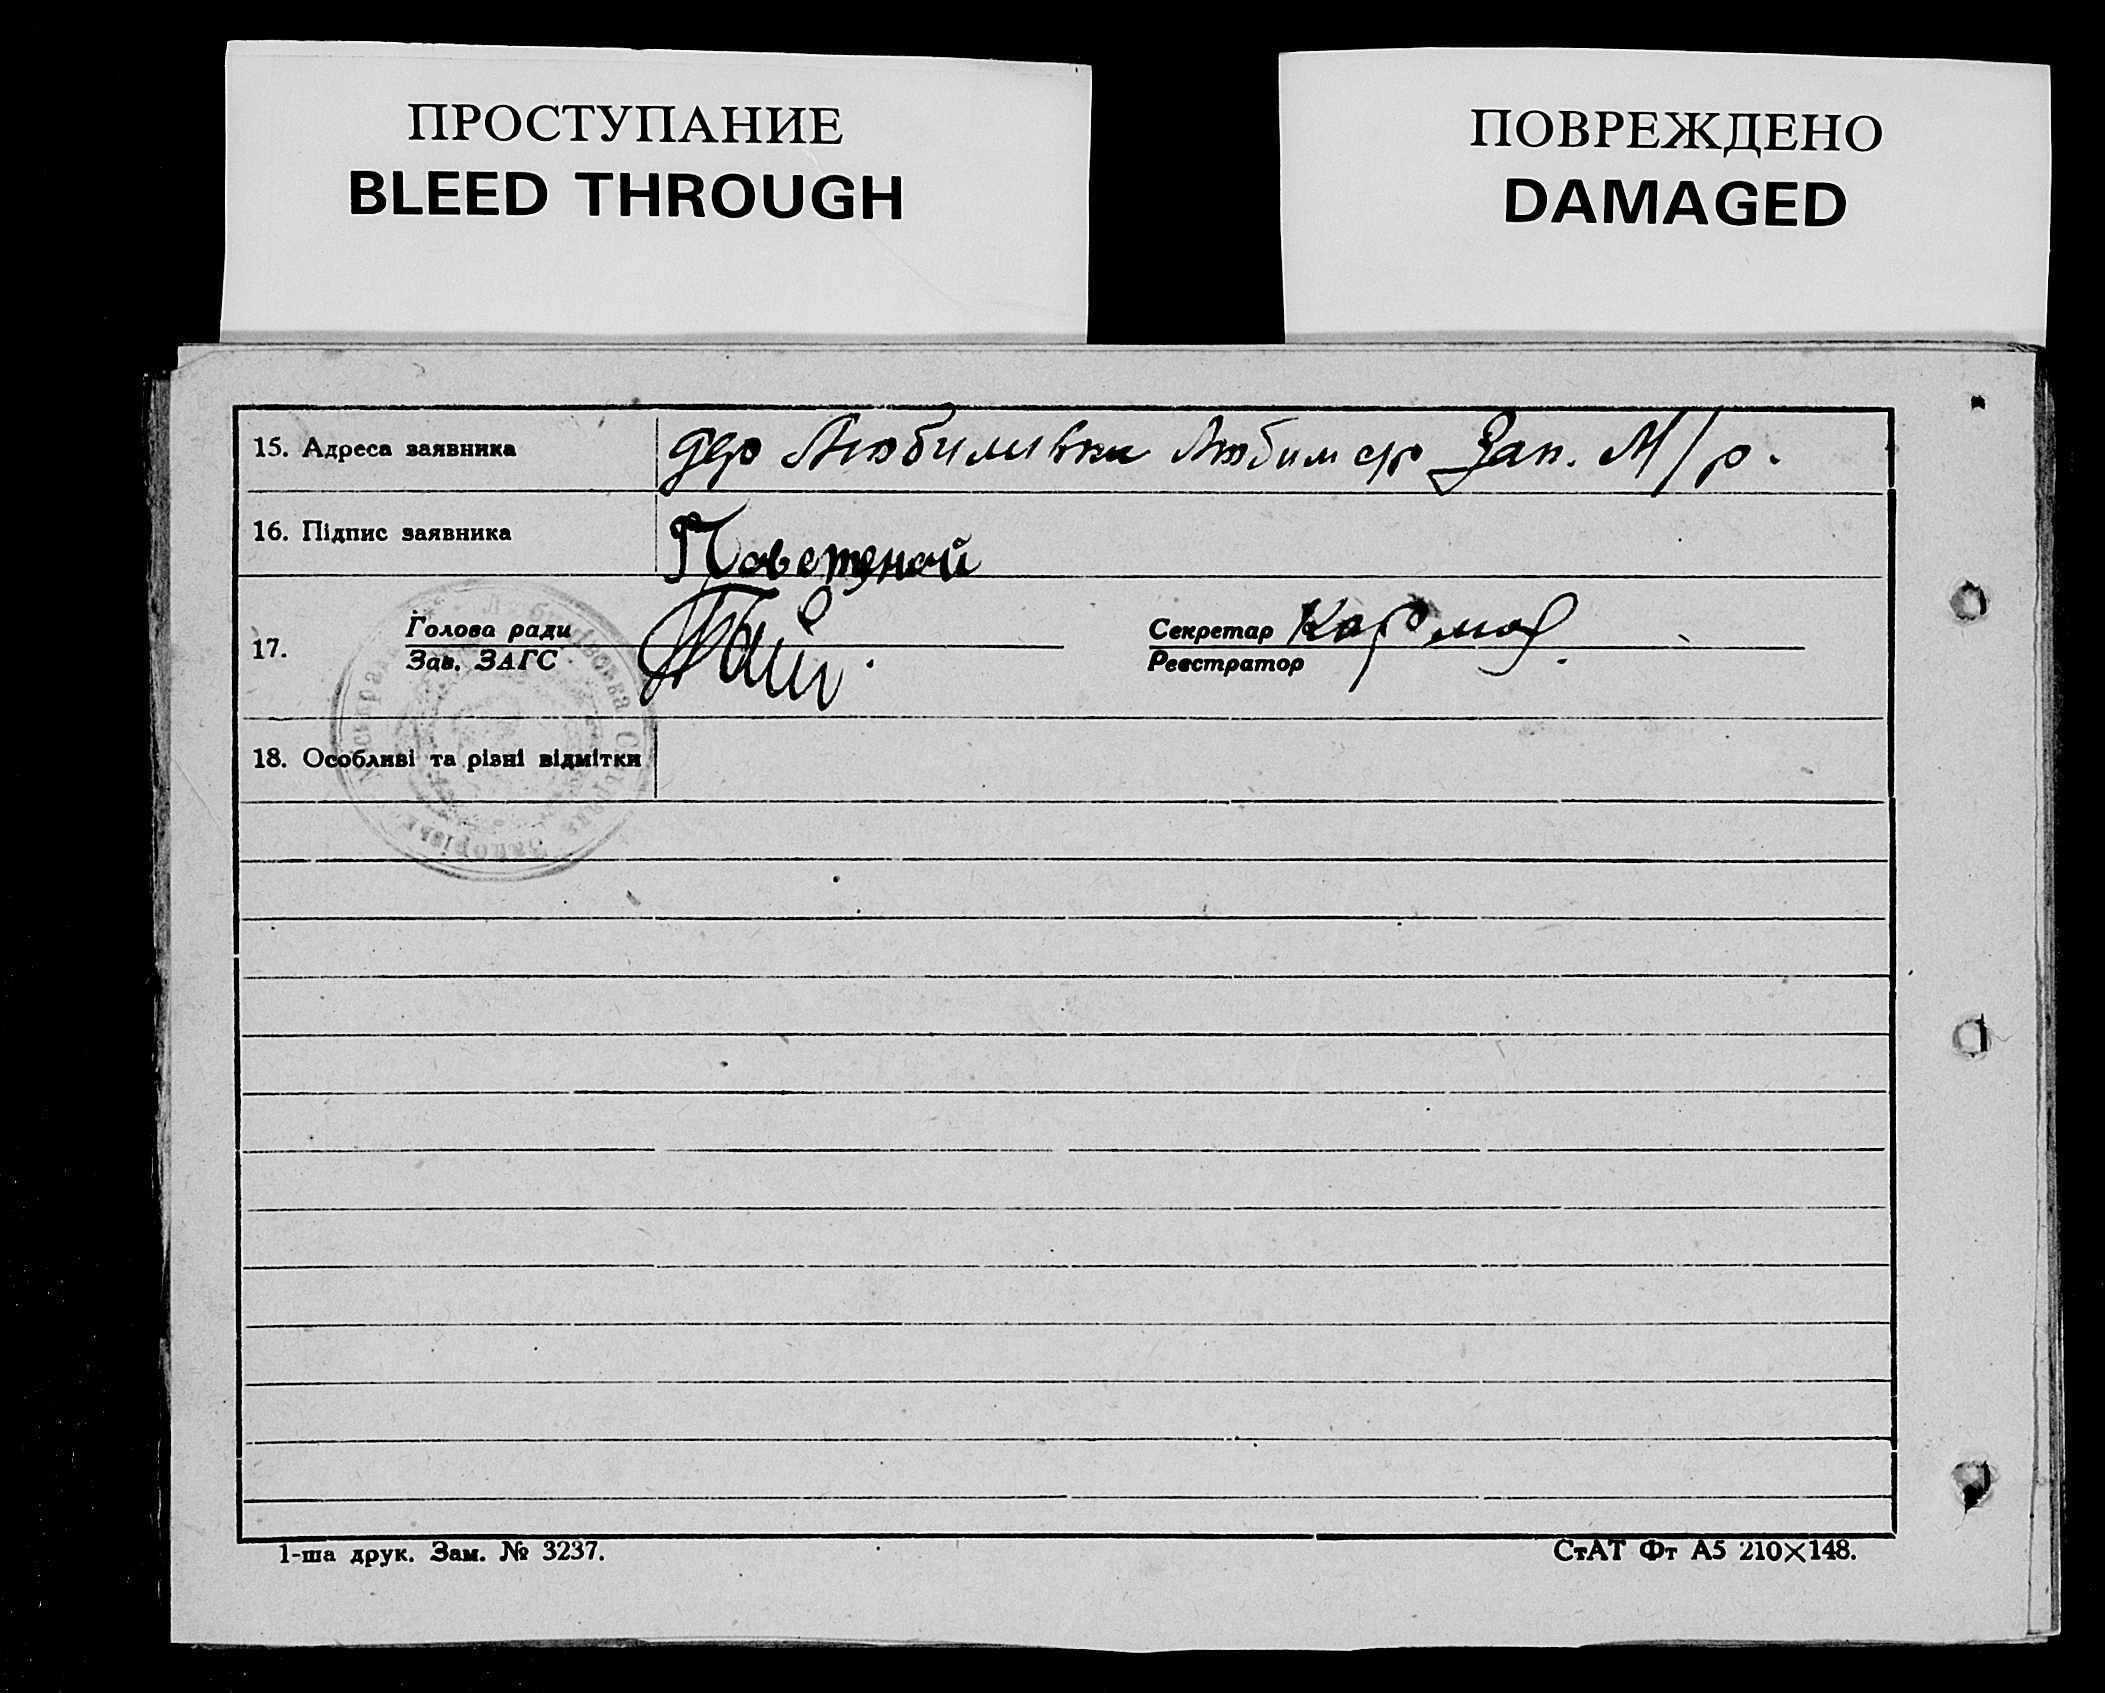 ПРОСТУПАНИЕ
BLEED THROUGH
ПОВРЕЖДЕНО
DAMAGED
15. Адреса заявника дер Любимивка Любим ср Зап. М/р.
16. Підпис заявника
17. Голова ради
Зав. ЗАГС
Секретар
Реєстратор
18. Особливі та різні відмітки
1-ша друк. Зам. № 3237.
СтАТ Фт А5 210×148.